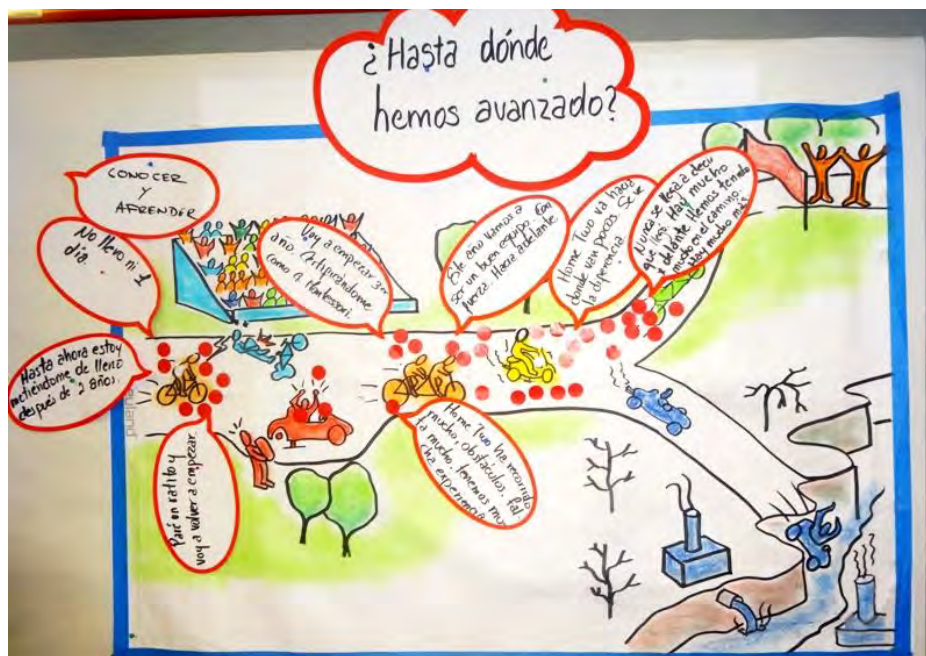 ¿Hasta dónde
hemos avanzado?
CONOCER
Y
AFRENDER
No llevo ni 1
día.
Hasta ahora estoy
metiéndome de lleno
después de 2 años.
Paré un ratito y
voy a volver a empezar
Voy a empezar 3er
año. Certificándome
como a Montessori.
Este año vamos a
ser un buen equipo. Con
fuerza. Hacia adelante
Home Two va hacia
donde van pocos. Se ve
la diferencia.
Nunca se llega a decir
que llegó. Hay mucho
x delante. Hemos tenido
mucho en el camino.
Hay mucho más
Home Two ha recorrido
mucho, obstáculos, fal
ta mucho. Tenemos mu
cha experiencia